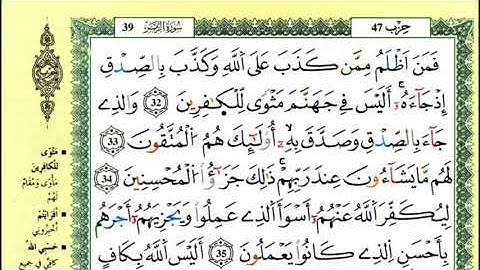 39 سُورَةُ الزُّمَر حِزْب 47
فَمَنَ اَظْلَمُ مِمَّن كَذَبَ عَلَى اَللَّهِ وَكَذَّبَ بِالصِّدْقِ
إِذْ جَآءَهُۥٓ أَلَيْسَ فِي جَهَنَّمَ مَثْوىً لِّلْكٰفِرِينَ 32 وَالذِے
جَآءَ بِالصِّدْقِ وَصَدَّقَ بِهِۦٓ أُوْلَٰٓئِكَ هُمُ الْمُتَّقُونَ 33
لَهُم مَّا يَشَآءُونَ عِندَ رَبِّهِمْ ذَٰلِكَ جَزَٰٓؤُاْ الْمُحْسِنِينَ 34
لِيُكَفِّرَ اَللَّهُ عَنْهُمُۥٓ أَسْوَأَ اَلذِے عَمِلُواْ وَيَجْزِيَهُمُۥٓ أَجْرَهُم
بِأَحْسَنِ اِلذِے كَانُواْ يَعْمَلُونَ 35 أَلَيْسَ اَللَّهُ بِكَافٍ
حِزْب
مَثْوًى
لِلْكَافِرِينَ
مَأْوًى وَمُقَامٌ
لَهُمْ
أَفَرَايْتُم
أَخْبِرُونِي
حَسْبِيَ اللهُ
كَافِيَّ فِي جَمِيعِ